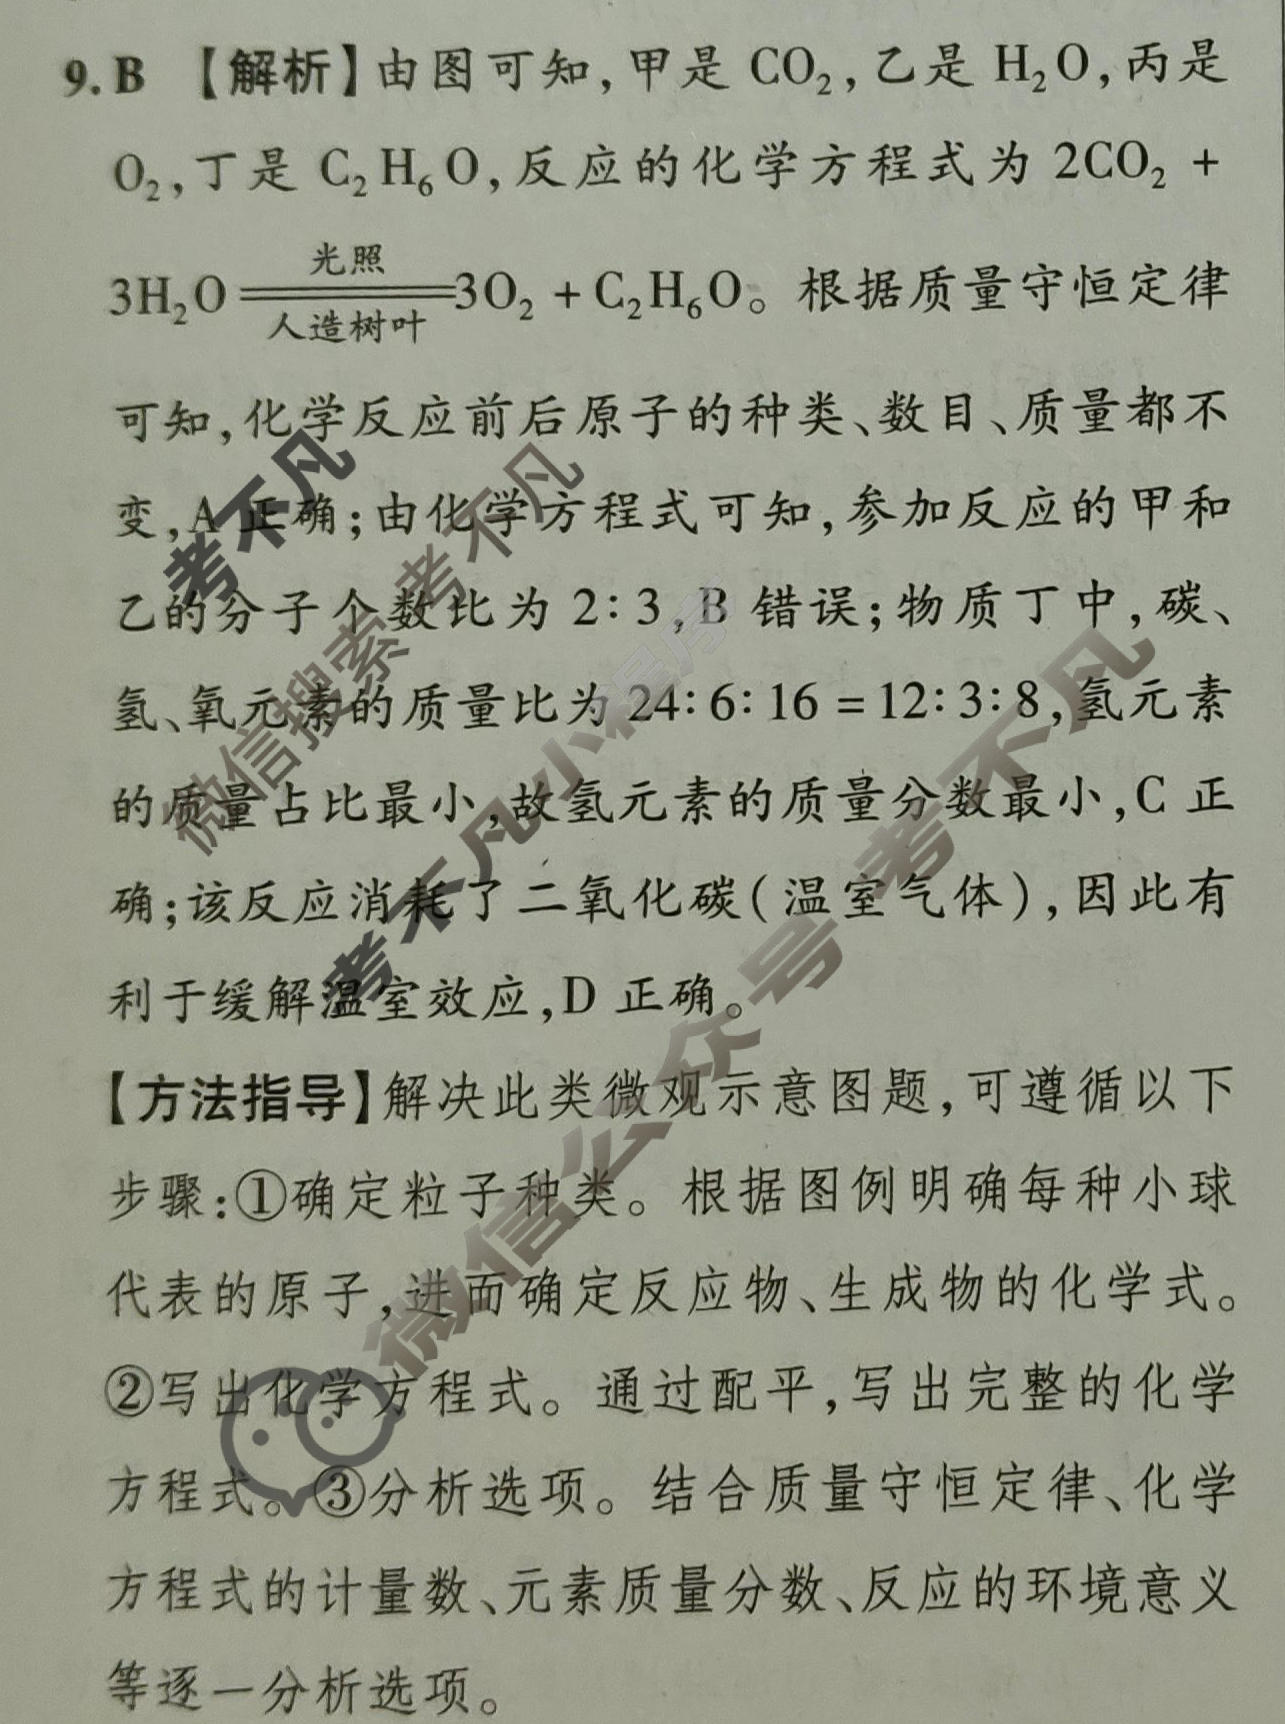 9. B 【解析】由图可知,甲是 CO₂,乙是 H₂O,丙是
O₂,丁是 C₂H₆O,反应的化学方程式为 2CO₂ +
光照
3H₂O══════3O₂ + C₂H₆O。根据质量守恒定律
人造树叶
可知,化学反应前后原子的种类、数目、质量都不
变,A 正确;由化学方程式可知,参加反应的甲和
乙的分子个数比为 2∶3,B 错误;物质丁中,碳、
氢、氧元素的质量比为 24∶6∶16 = 12∶3∶8,氢元素
的质量占比最小,故氢元素的质量分数最小,C 正
确;该反应消耗了二氧化碳(温室气体),因此有
利于缓解温室效应,D 正确。
【方法指导】解决此类微观示意图题,可遵循以下
步骤:①确定粒子种类。根据图例明确每种小球
代表的原子,进而确定反应物、生成物的化学式。
②写出化学方程式。通过配平,写出完整的化学
方程式。③分析选项。结合质量守恒定律、化学
方程式的计量数、元素质量分数、反应的环境意义
等逐一分析选项。
考不凡
微信搜索 考不凡
考不凡小程序
微信公众号 考不凡